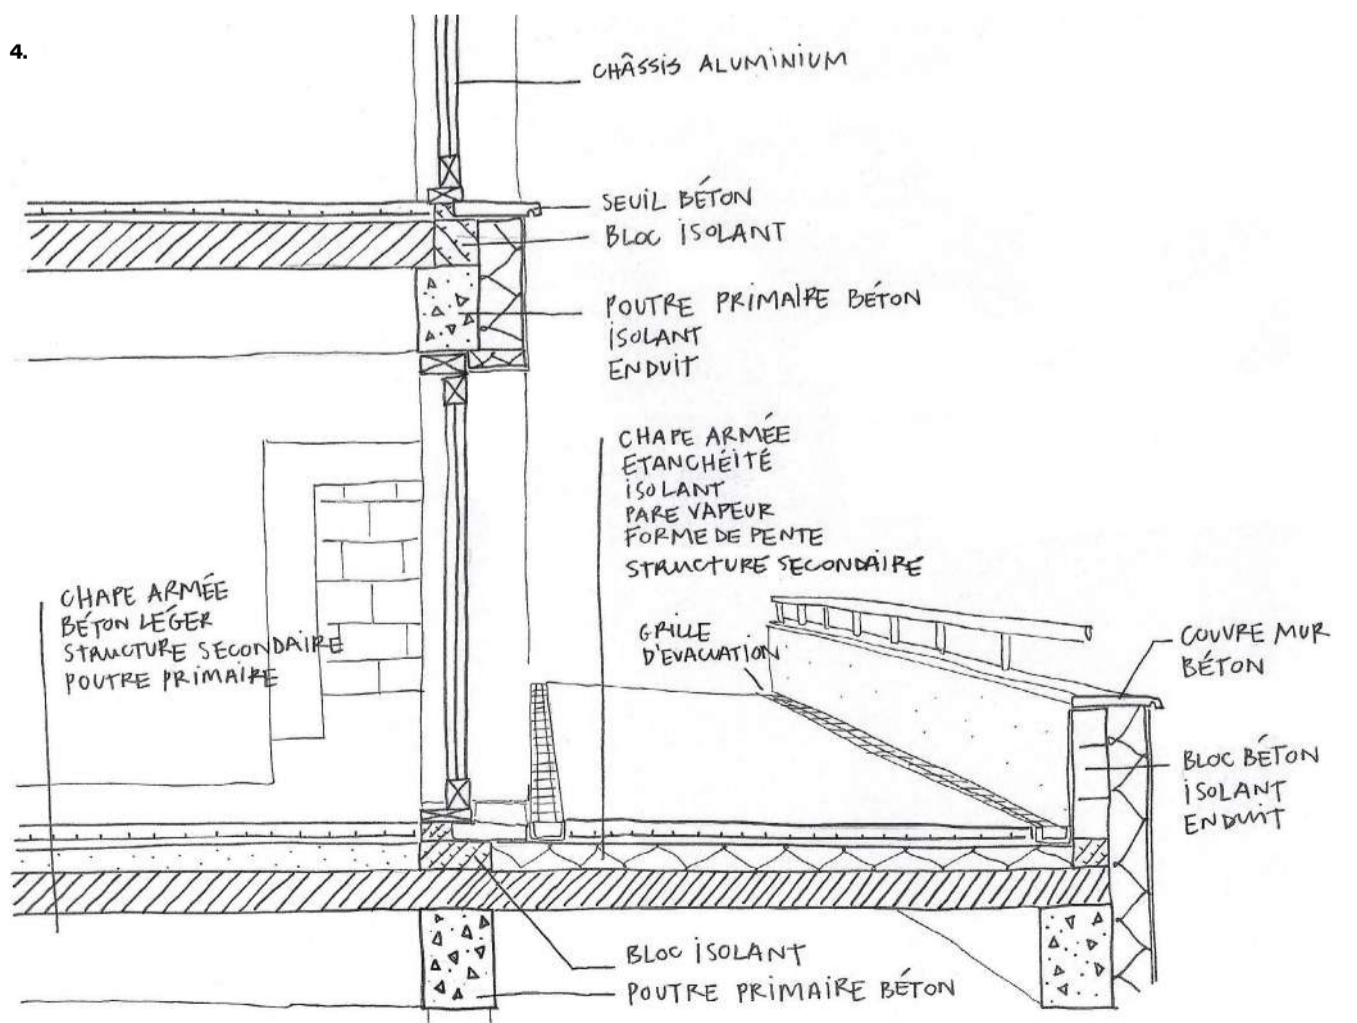 4.
CHÂSSIS ALUMINIUM
SEUIL BÉTON
BLOC ISOLANT
POUTRE PRIMAIRE BÉTON
ISOLANT
ENDUIT
CHAPE ARMÉE
ETANCHÉITÉ
ISOLANT
PARE VAPEUR
FORME DE PENTE
STRUCTURE SECONDAIRE
CHAPE ARMÉE
BÉTON LÉGER
STRUCTURE SECONDAIRE
POUTRE PRIMAIRE
GRILLE
D'EVACUATION
COUVRE MUR
BÉTON
BLOC BÉTON
ISOLANT
ENDUIT
BLOC ISOLANT
POUTRE PRIMAIRE BÉTON